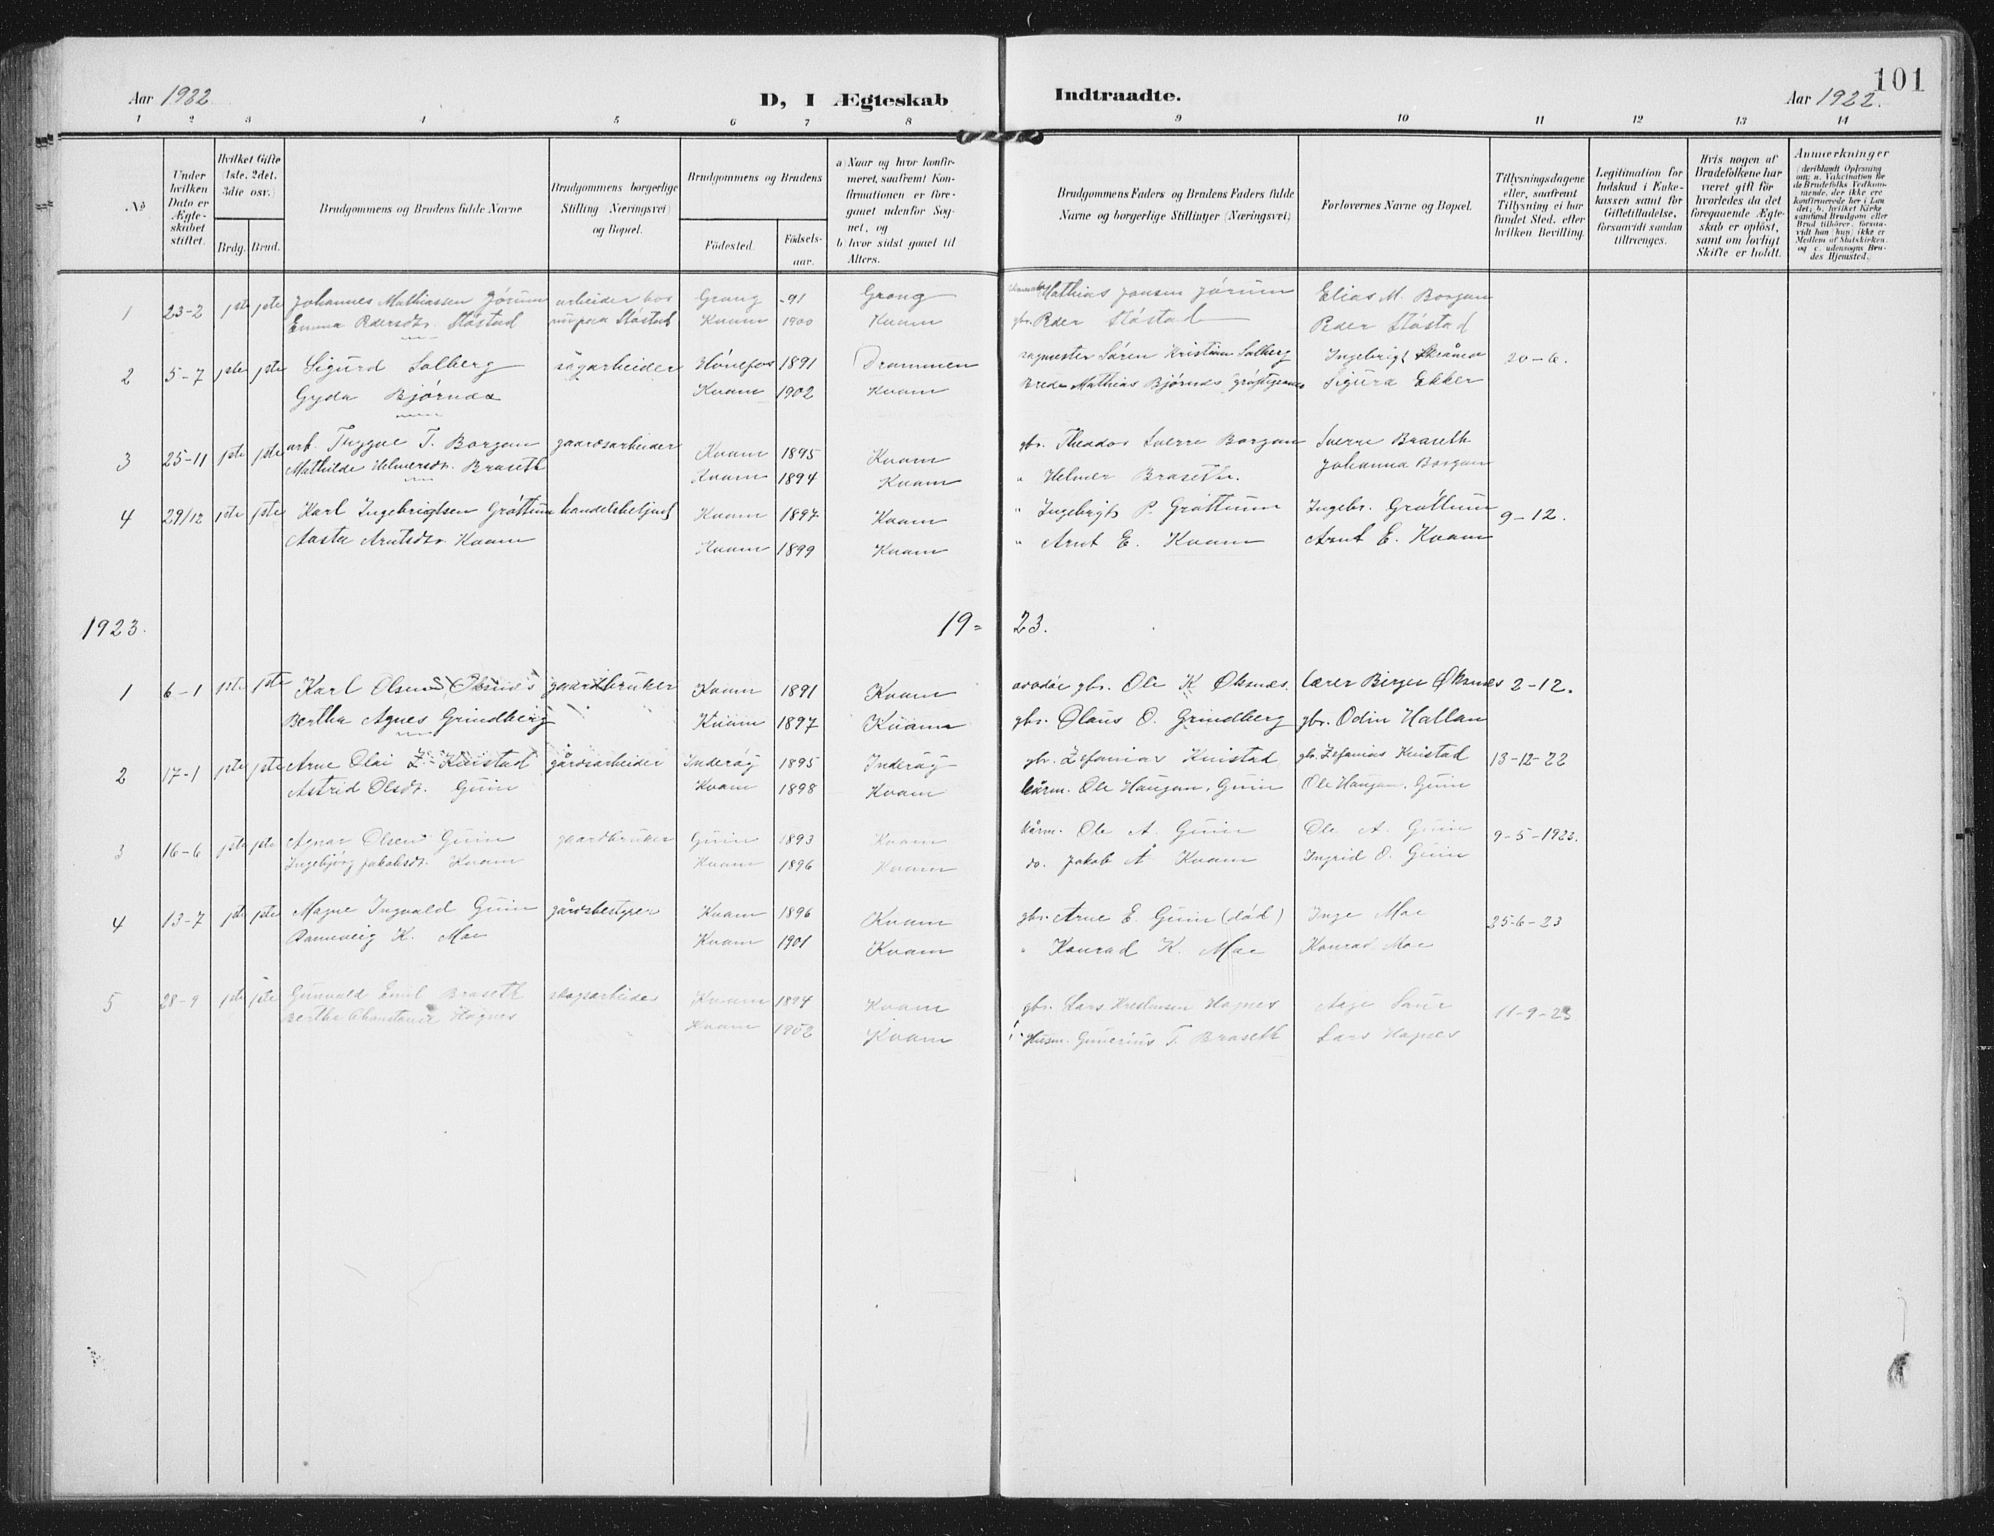 101
Aar 1922
D, I Ægteskab
Indtraadte.
Aar 1922.
1 2 3 4 5 6 7 8 9 10 11 12 13 14
№
Under hvilken Dato er Ægteskabet stiftet.
Hvilket Gifte 1ste. 2det. 3die osv.
Brdg. Brud.
Brudgommens og Brudens fulde Navne
Brudgommens borgerlige Stilling (Næringsvei) og Bopæl.
Brudgommens og Brudens
Födested. Födselsaar.
a) Naar og hvor konfirmeret, saafremt Konfirmationen er foregaaet udenfor Sognet, og
b) hvor sidst gaaet til Alters.
Brudgommens Faders og Brudens Faders fulde Navne og borgerlige Stillinger (Næringsvei)
Forlovernes Navne og Bopæl.
Tillysningsdagene eller, saafremt Tillysning ei har fundet Sted, efter hvilken Bevilling.
Legitimation for Indskud i Enkekassen samt for Giftetilladelse, forsaavidt saadan tiltrænges.
Hvis nogen af Brudefolkene har været gift för hvorledes da det foregaaende Ægteskab er oplöst, samt om lovligt Skifte er holdt.
Anmerkninger
(deriblandt Oplysning om: a. Vaksination for de Brudefolks Vedkommende, der ikke ere konfirmerede her i Landet; b. hvilket Kirkesamfund Brudgom eller Brud tilhörer, forsaavidt han (hun) ikke er Medlem af Statskirken, og c. udensogns Brudes Hjemsted.
1 23-2 1ste 1ste Johannes Mathiassen Jørum arbeider hos Grong -91 Grong Mathias Jansen Jørum Elias M. Borgan
Emma Pedersdtr. Støstad Støstad Kvam 1900 Kvam gbr. Peder Støstad Peder Støstad
2 5-7 1ste 1ste Sigurd Solberg sagarbeider Hønefos 1891 Drammen sagmester Søren Kristian Solberg Ingebrigt 20-6.
Gyda Bjørnes Kvam 1902 Kvam Mathias Bjørnes Sigurd Ekker
3 25-11 1ste 1ste arb. Trygve T. Borgan gaardsarbeider Kvam 1895 Kvam gbr. Theodor Sverre Borgan Sverre Braseth
Mathilde Helmersdr. Braseth Kvam 1894 Kvam " Helmer Braseth. Johanna Borgan
4 29/12 1ste 1ste Karl Ingebrigtsen Grøttum handelsbetjent Kvam 1897 Kvam " Ingebrigt P. Grøttum Ingebr. Grøttum 9-12.
Aasta Arntsdr. Kvam Kvam 1899 Kvam " Arnt E. Kvam Arnt E. Kvam
1923. 19= 23.
1 6-1 1ste 1ste Karl Olsen Øksnes gaardbruker Kvam 1891 Kvam avdøe gbr. Ole K Øksnes. lærer Birger Øksnes 2-12.
Bertha Agnes Grindberg Kvam 1897 Kvam gbr. Olaus O. Grindberg gbr. Odin Hallan
2 17-1 1ste 1ste Arne Olai Z. Kvistad gårdsarbeider Inderøy 1895 Inderøy gbr. Zefanias Kvistad gbr. Zefanias Kvistad 13-12-22
Astrid Olsdr. Guin Kvam 1898 Kvam kårm. Ole Haugan, Guin Ole Haugan, Guin
3 16-6 1ste 1ste Agnar Olsen Guin gaardbruker Guin 1893 Kvam kårm. Ole A. Guin Ole A. Guin 9-5-1923.
Ingebjørg Jakobsdr. Kvam Kvam 1896 Kvam do. Jakob A Kvam Ingrid O. Guin
4 13-7 1ste 1ste Magne Ingvald Guin gårdsbestyrer Kvam 1896 Kvam gbr. Arne E. Guin (død) Inge Moe 25-6-23
Ranveig K. Moe Kvam 1901 Kvam " Konrad K. Moe Konrad Moe
5 28-9 1ste 1ste Gunvald Emil Braseth skogsarbeider Kvam 1894 Kvam gbr. Lars Kristensen Hognes Aage Saur 11-9-23
Berthe Hognes Kvam 1902 Kvam Husm. Gunerius T. Braseth Lars Hognes